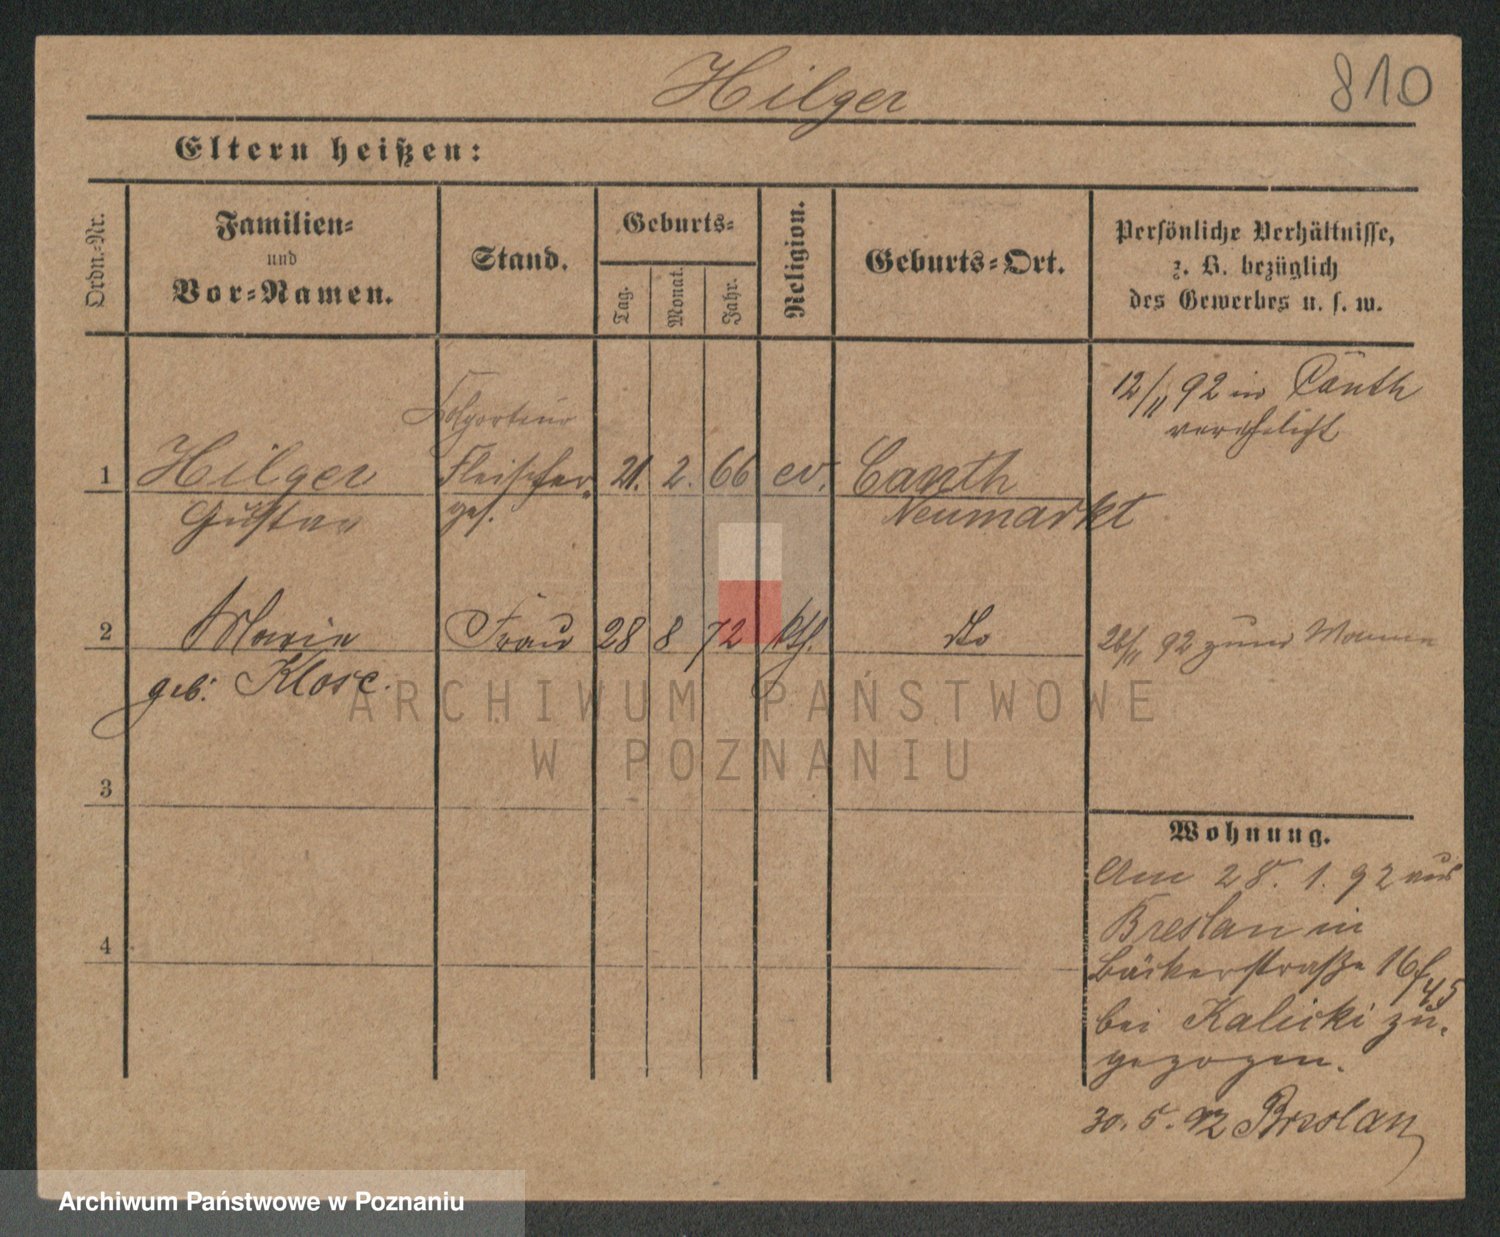 Hilger
810
Eltern heißen:
Ordn.-Nr.
Familien-
und
Vor-Namen.
Stand.
Geburts-
Tag.
Monat.
Jahr.
Religion.
Geburts-Ort.
Persönliche Verhältnisse,
z. B. bezüglich
des Gewerbes u. s. w.
12/11 92 in Canth
verehelicht
Kolporteur
1 Hilger Fleischer- 21. 2. 66 ev. Canth
Gustav ges. Neumarkt
2 Maria Frau 28 8 72 kth. dto 26/11 92 zum Manne
geb: Klose.
ARCHIWUM PAŃSTWOWE
W POZNANIU
3
4
Wohnung.
Am 28. 1. 92 aus
Breslau in
Bäckerstraße 16
bei Kalicki zu-
gezogen.
30. 5. 92 Breslau
Archiwum Państwowe w Poznaniu